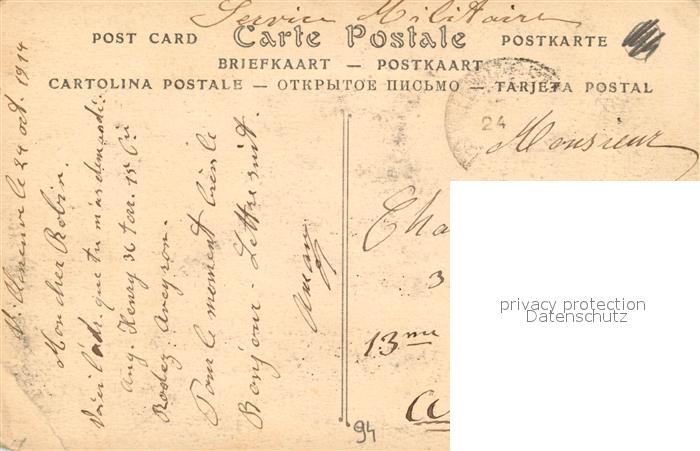 Service Militaire
POST CARD Carte Postale POSTKARTE
BRIEFKAART — POSTKAART
CARTOLINA POSTALE — ОТКРЫТОЕ ПИСЬМО — TARJETA POSTAL
24
Monsieur
Cha
3
13me
94
le 24 oct. 1914
Mon cher Robin.
Voici l'adr. que tu m'as demandé:
Aug. Henry 36 terr. 15 Cie
Rodez Aveyron.
Pour le moment bien le
Bonjour. Lettre suit.
privacy protection
Datenschutz